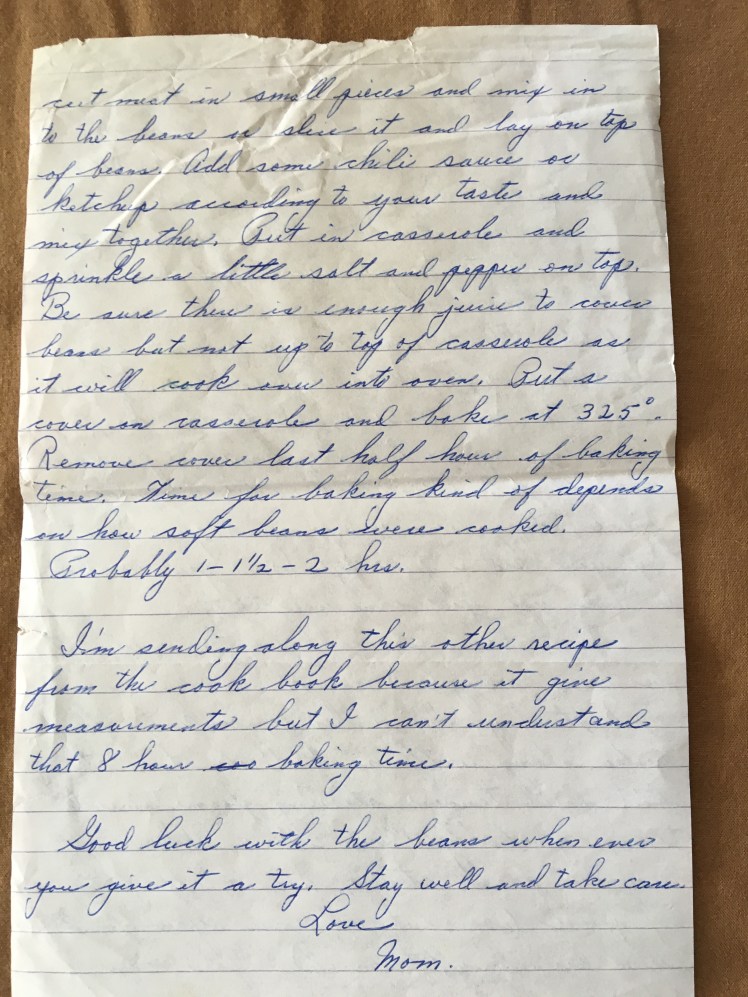 cut meat in small pieces and mix in
to the beans or slice it and lay on top
of beans. Add some chili sauce or
ketchup according to your taste and
mix together. Put in casserole and
sprinkle a little salt and pepper on top.
Be sure there is enough juice to cover
beans but not up to top of casserole as
it will cook over into oven. Put a
cover on casserole and bake at 325°.
Remove cover last half hour of baking
time. Time for baking kind of depends
on how soft beans were cooked.
Probably 1 - 1 1/2 - 2 hrs.
I'm sending along this other recipe
from the cook book because it give
measurements but I can't understand
that 8 hour baking time.
Good luck with the beans when ever
you give it a try. Stay well and take care.
Love
Mom.